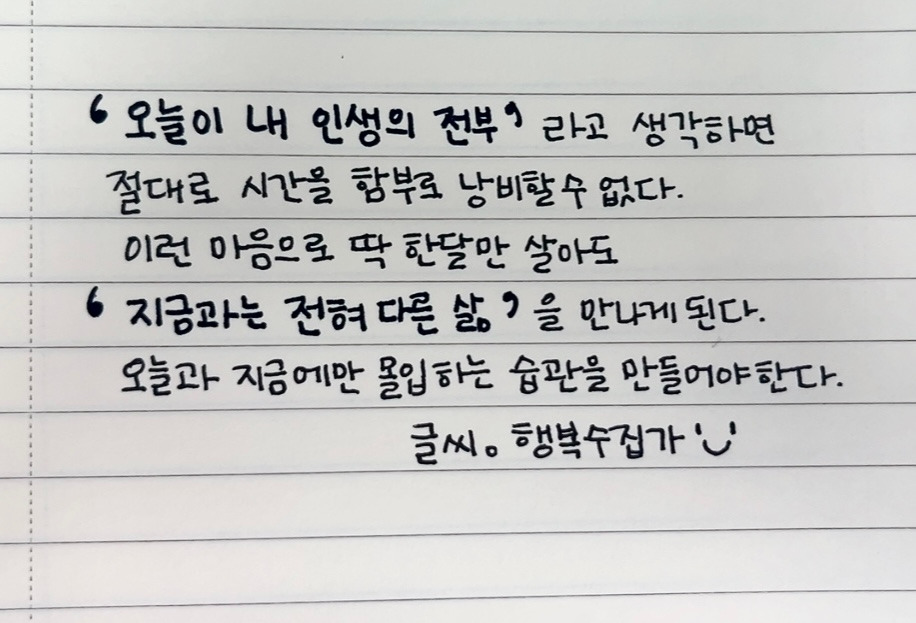 ‘오늘이 내 인생의 전부’ 라고 생각하면
절대로 시간을 함부로 낭비할 수 없다.
이런 마음으로 딱 한달만 살아도
‘지금과는 전혀 다른 삶’을 만나게 된다.
오늘과 지금에만 몰입하는 습관을 만들어야한다.
글씨。행복수집가 '◡'